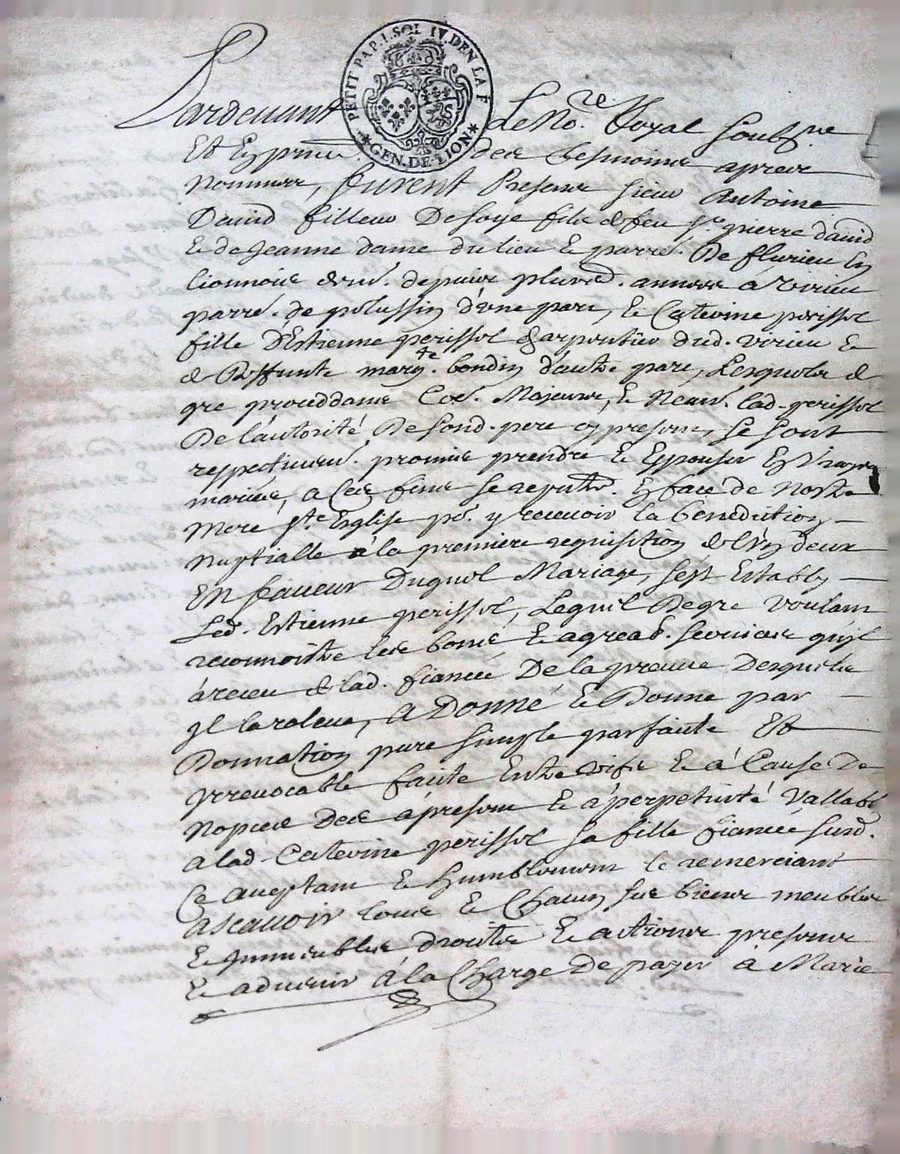 PETIT PAP. 1. SOL IV. DEN LA F
* GEN. DE LION *
Pardevant Le No.re Royal soubs.né
Et En presence des tesmoins apres
nommes, furent Presens sieur Antoine
David filleur De soye fils de feu sr. pierre david
& de Jeanne dame du lieu & parre. De flurieu En
lionnois depuis plusrs. annees à virieu
parre. de pelussin d'une part, & Caterine perissol
fille d'Estienne perissol Charpentier dud. virieu &
de Deffunte margte. bondin d'autre part, Lesquels de
gre proceddants Com. Majeurs, & Neanm. lad. perissol
De l'autorité De sond. pere Cy present, se sont
respectivem. promis prendre & Espouser En vraye
mariés, a Ces fins se En face de Nostre
Mere ste. Eglise pr. y recevoir la benediction
Nuptialle à la premiere requisition de l'un deux
En faveur Duquel Mariage, sest Estably
Led. Estienne perissol, Lequel De gre voulant
reconnoistre les bons & agreab. services qu'il
à receu de lad. fiancée De la preuve Desquels
Jl la releve, a Donné & Donne par
Donnation pure simple parfaite Et
Yrrevocable faite Entre vifs & à Cause De
Nopces Des apresent & à perpetuité vallable
a lad. Caterine perissol sa fille fiancée susd.
Ce aceptant & humblement le remerciant
Ascavoir tous & Chacun ses biens meubles
& Jmmeubles droits & actions presents
& advenir à la Charge De payer à Marie